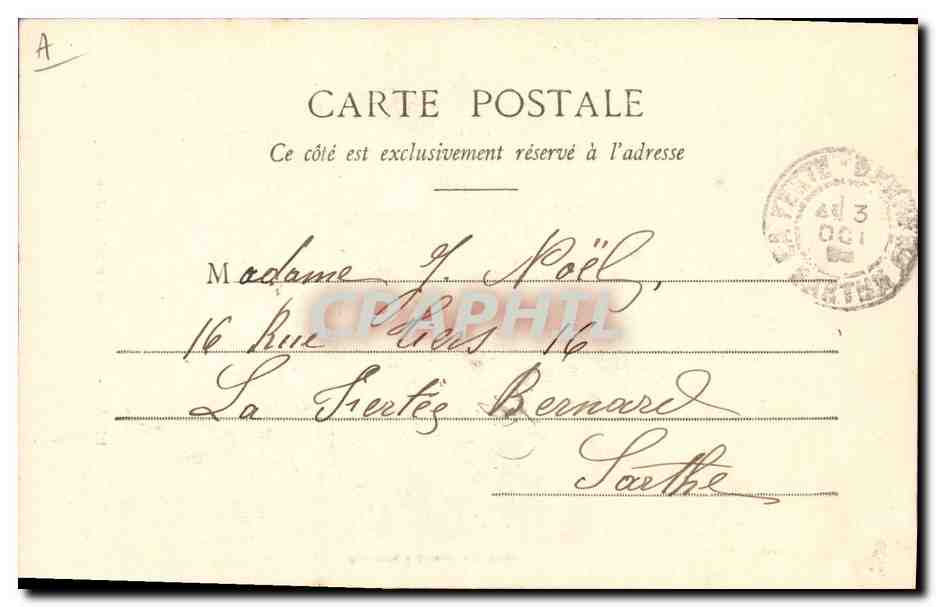 A
CARTE POSTALE
Ce côté est exclusivement réservé à l'adresse
LA FERTE-BERNARD
3
OCT
SARTHE
Madame J. Noël,
CPAPHIL
16 Rue Thiers 16
La Fertée Bernard
Sarthe